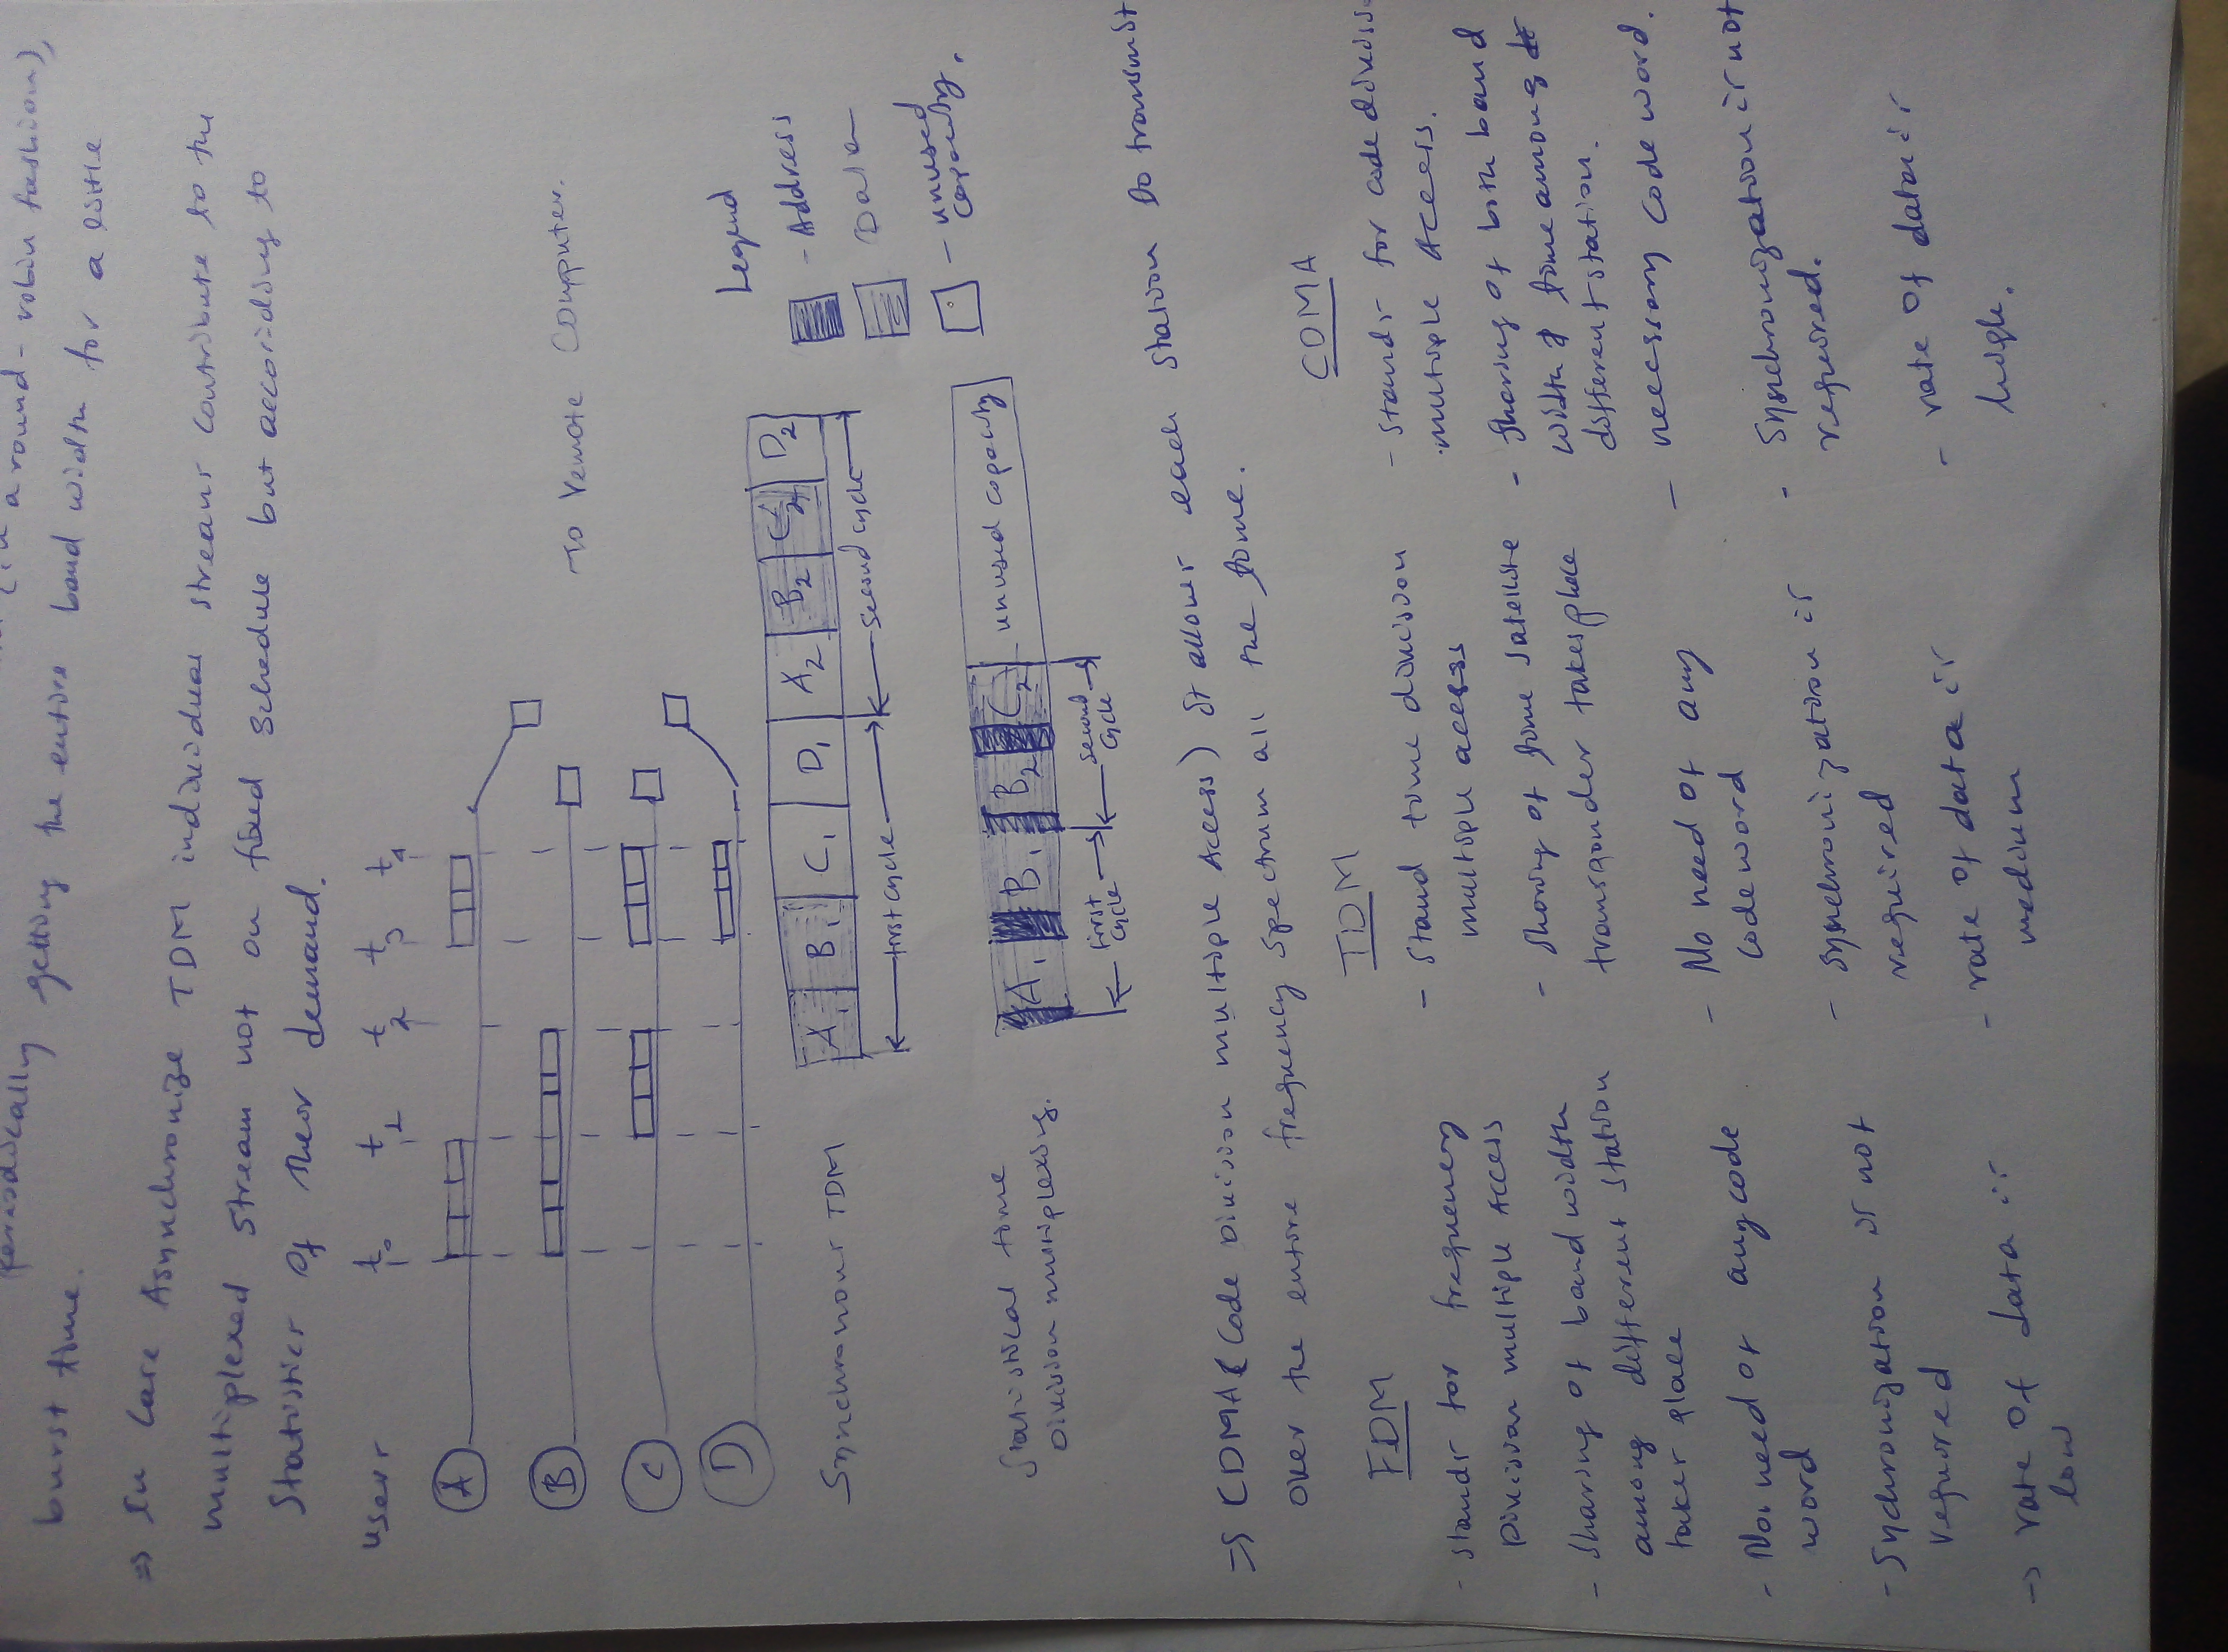 a round - robin fashion),
periodically getting the entire band width for a little
burst time.
=> In Case Asynchronize TDM individual streams contribute to the
multiplexed stream not on fixed schedule but according to
Statistics of their demand.
users
t0 t1 t2 t3 t4
A
B
To remote Computer.
C
D
Legend
- Address
Data
- unused
capacity.
Synchronous TDM
A1 B1 C1 D1 A2 B2 C2 D2
first cycle
second cycle
Statistical time
Division multiplexing.
A1 B1 B2 C2 unused capacity
first
cycle
second
cycle
=> CDMA (Code Division multiple Access) It allows each station to transmit
over the entire frequency spectrum all the time.
FDM
- stands for frequency
Division multiple Access
- Sharing of band width
among different station
takes place
- No need of any code
word
- Synchronization is not
required
-> rate of data is
low
TDM
- Stand time division
multiple access
- Sharing of time satellite
transponder takes place
- No need of any
codeword
- Synchronization is
required
- rate of data is
medium
CDMA
- stands for code division
multiple Access.
- Sharing of both band
width & time among
different station.
- necessary code word.
- Synchronization is not
required.
- rate of data is
high.